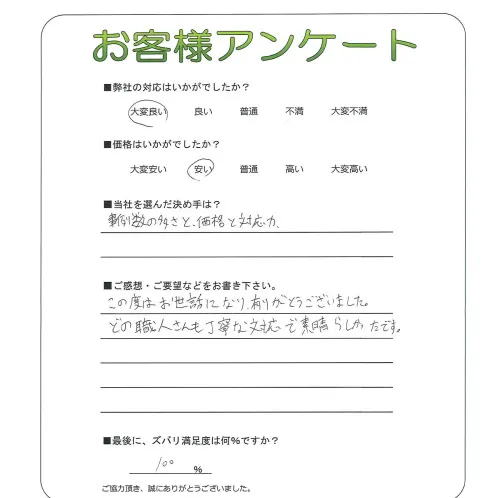 お客様アンケート
■弊社の対応はいかがでしたか？
大変良い 良い 普通 不満 大変不満
■価格はいかがでしたか？
大変安い 安い 普通 高い 大変高い
■当社を選んだ決め手は？
事例数の多さと、価格と対応力、
■ご感想・ご要望などをお書き下さい。
この度はお世話になり、有りがとうございました。
どの職人さんも丁寧な対応で素晴らしかったです。
■最後に、ズバリ満足度は何%ですか？
100 %
ご協力頂き、誠にありがとうございました。